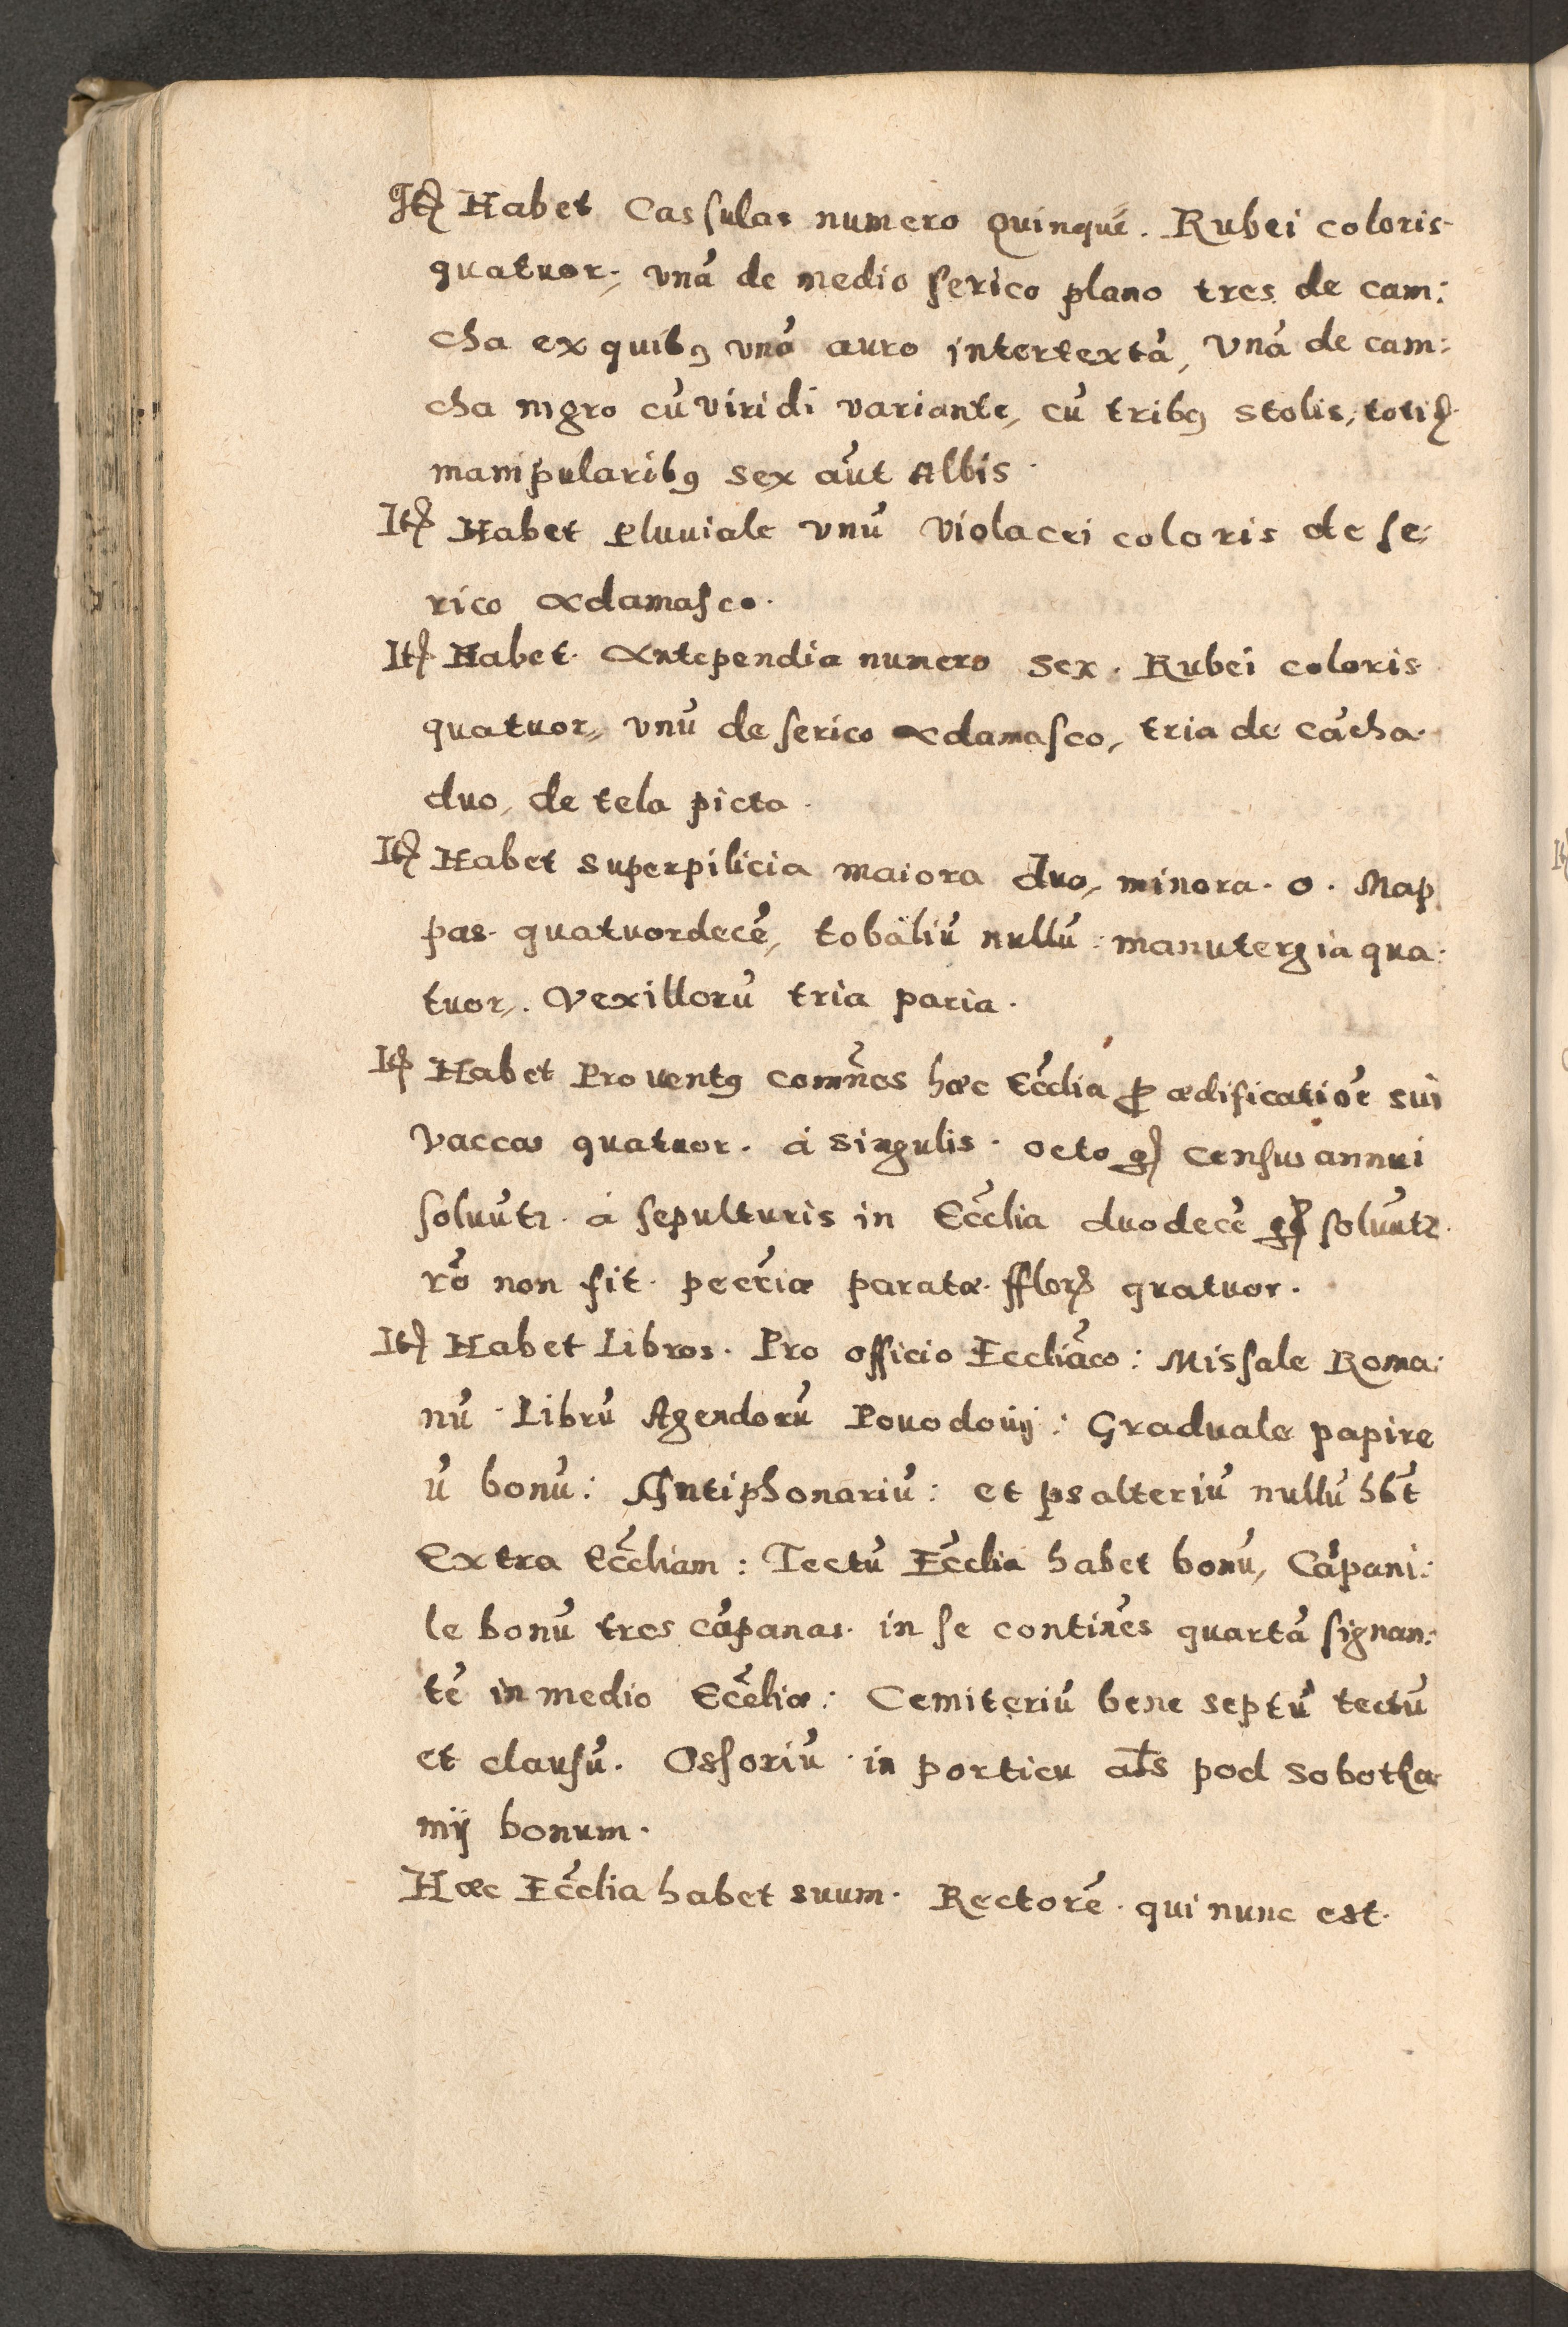 Itꝫ Habet Casſulas numero Quinque. Rubei coloris
quatuor, vnā de medio ſerico plano tres de cam:
cha ex quibꝯ vnā auro intertextā, vnā de cam:
cha nigro cū viridi variante, cū tribꝯ stolis, totiꝫ
manipularibꝯ sex aūt Albis.
Itꝫ Habet Pluuiale vnū violacei coloris de ſe:
rico adamaſco.
Itꝫ Habet Antependia numero sex. Rubei coloris
quatuor, vnū de ſerico adamaſco, tria de cācha
duo, de tela picta.
Itꝫ Habet superpilicia maiora duo, minora. o. Map
pas quatuordecē, tobaliū nullū: manutergia qua:
tuor. Vexillorū tria paria.
Itꝫ Habet Prouentꝯ comn̄es hæc Ecc̄lia ꝓ ædificatiōe sui
vaccas quatuor. à singulis. octo gꝫ census annui
ſoluūtꝛ. à ſepulturis in Ecc̄lia duodecē gꝫ ſoluūtꝛ.
rō non fit. pecc̄iæ paratæ. fflorꝫ quatuor.
Itꝫ Habet Libros. Pro officio Eccliāco: Misſale Roma:
nū Librū Agendorū Pouodouij: Graduale papire
ū bonū: Antiphonariū: et psalteriū nullū hb̄t
Extra Ecc̄liam: Tectū Ecc̄lia habet bonū, Cāpani:
le bonū tres cāpanas in ſe contin̄es quartā ſignan:
tē in medio Ecc̄liæ: Cemiteriū bene septū tectū
et clauſū. Osſoriū in porticu al̄s pod Sobotka
mij bonum.
Hæc Ecc̄lia habet suum. Rectorē. qui nunc est.